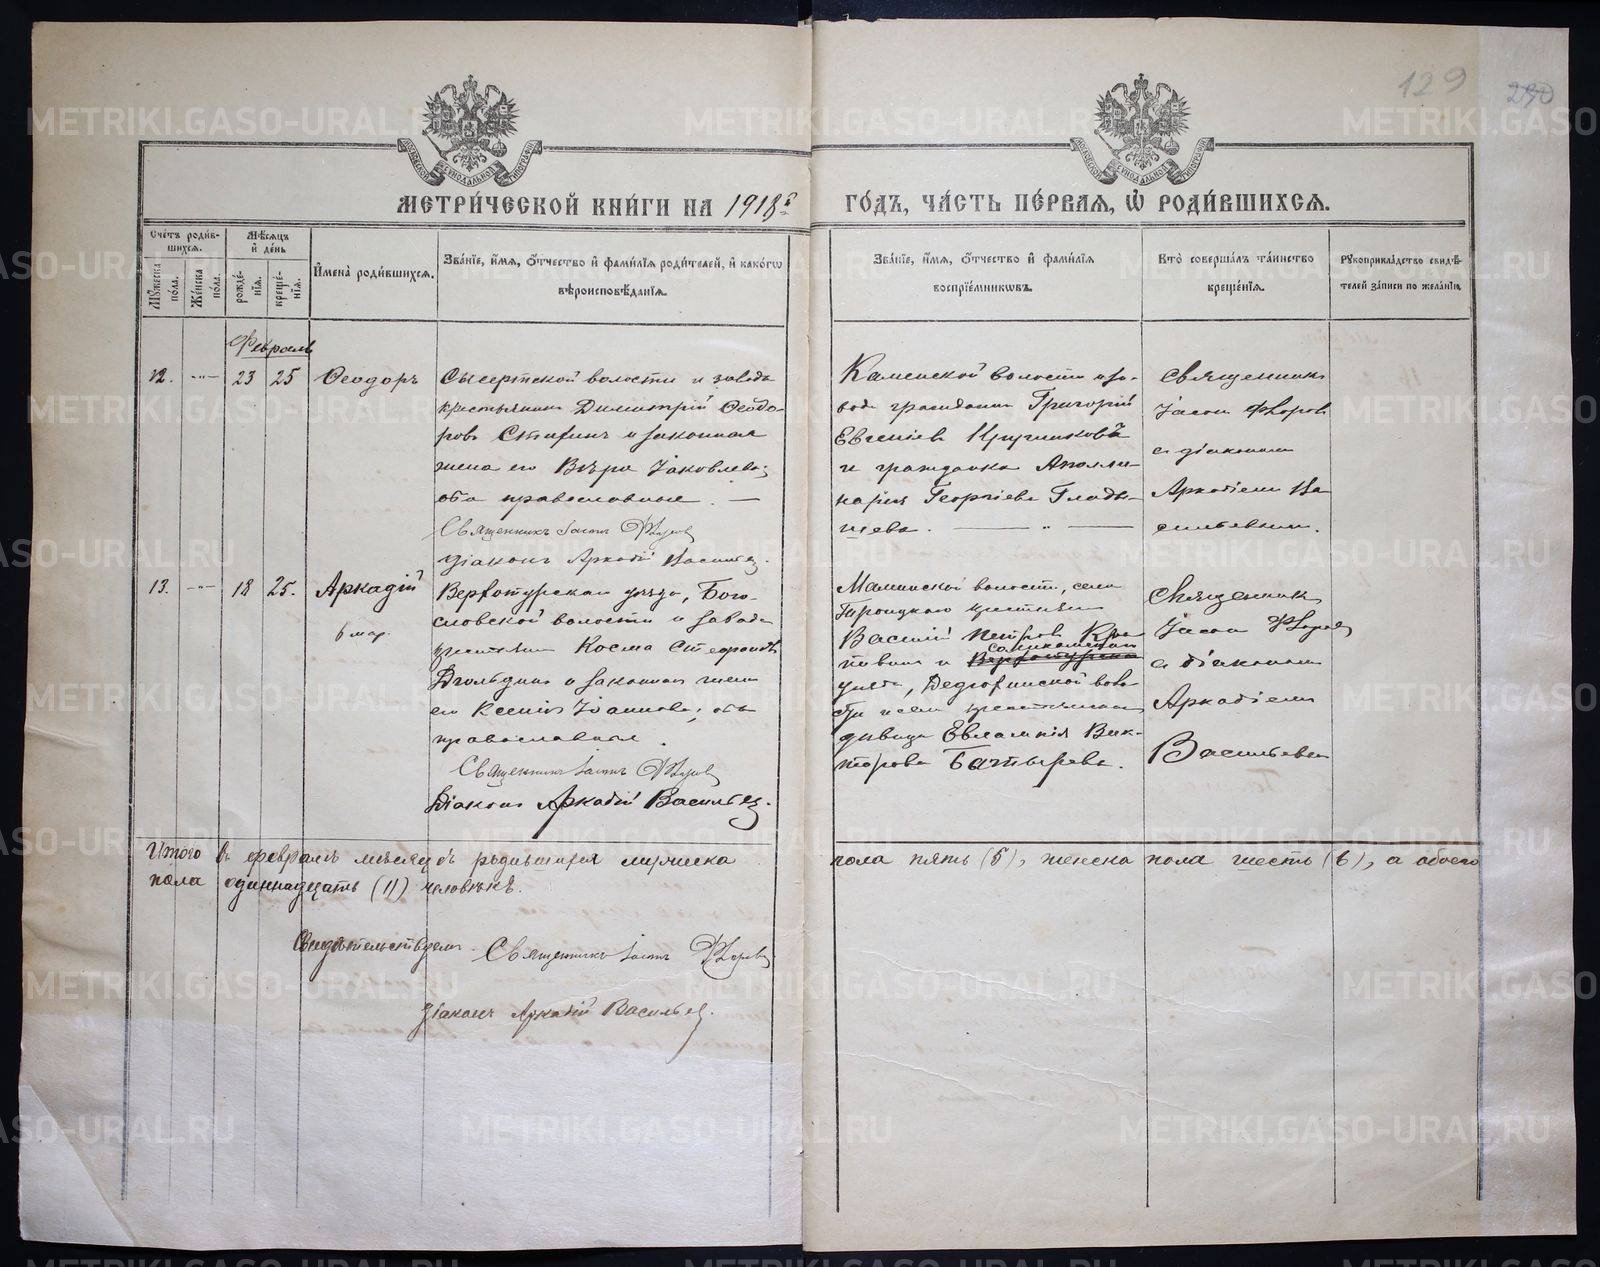 129
290
МЕТРИ́ЧЕСКОЙ КНИ́ГИ НА 1918й
ГО́ДЪ, ЧА́СТЬ ПЕ́РВАЯ, Ѡ РОДИ́ВШИХСЯ.
Сче́тъ роди́в-
шихся.
Мѣ́сяцъ
и҆ де́нь
Му́жеска
по́ла.
Же́нска
по́ла.
рожде́-
нїя.
креще́-
нїя.
И҆мена̀ роди́вшихся.
Зва́нїе, и҆́мя, ѻ҆́тчество и҆ фами́лїя роди́телей, и҆ како́гѡ
вѣроисповѣ́данїя.
Зва́нїе, и҆́мя, ѻ҆́тчество и҆ фами́лїя
воспрїе́мникѡвъ.
Кто̀ соверша́лъ та́инство
креще́нїя.
Рꙋкоприкла́дство свидѣ́-
телей за́писи по жела́нїю
Февраль
12.
23
25
Ѳеодоръ
Сысертской волости и завода
крестьянинъ Димитрій Ѳеодо-
ровъ и законная
жена его Вѣра Іаковлева;
оба православные.
Священникъ Іасонъ Флоровъ
Діаконъ Аркадій Васильев.
Каменской волости и за-
вода гражданин Григорій
Евгеніев
и гражданка Аполли-
нарія Георгіева Глады-
шева.
Священник
Іасон Флоров
с діаконом
Аркадіем Ва
сильевым.
13.
18
25.
Аркадій
6 мар.
Верхотурскаго уѣзда, Бого-
словской волости и завода
крестьянин Косма
и законная жена
его Ксенія Іоаннова; оба
православные.
Священникъ Іасонъ Флоров
Діаконъ Аркадій Васильев.
Маминской волости, села
Троицкаго крестьянин
Василій Петров
и
уѣзда, волос-
ти и села крестьянская
дивица Евлампія Вик-
торова Батырева.
Священник
Іасон Флоров
с діаконом
Аркадіем
Васильевым
Итого въ февралѣ мѣсяцѣ родившихся мужеска
пола пять (5), женска пола шесть (6), а обоего
пола одиннадцать (11) человѣкъ.
Свидѣтельствуем:
Священникъ Іасонъ Флоров
Діаконъ Аркадій Васильев.
METRIKI.GASO-URAL.RU